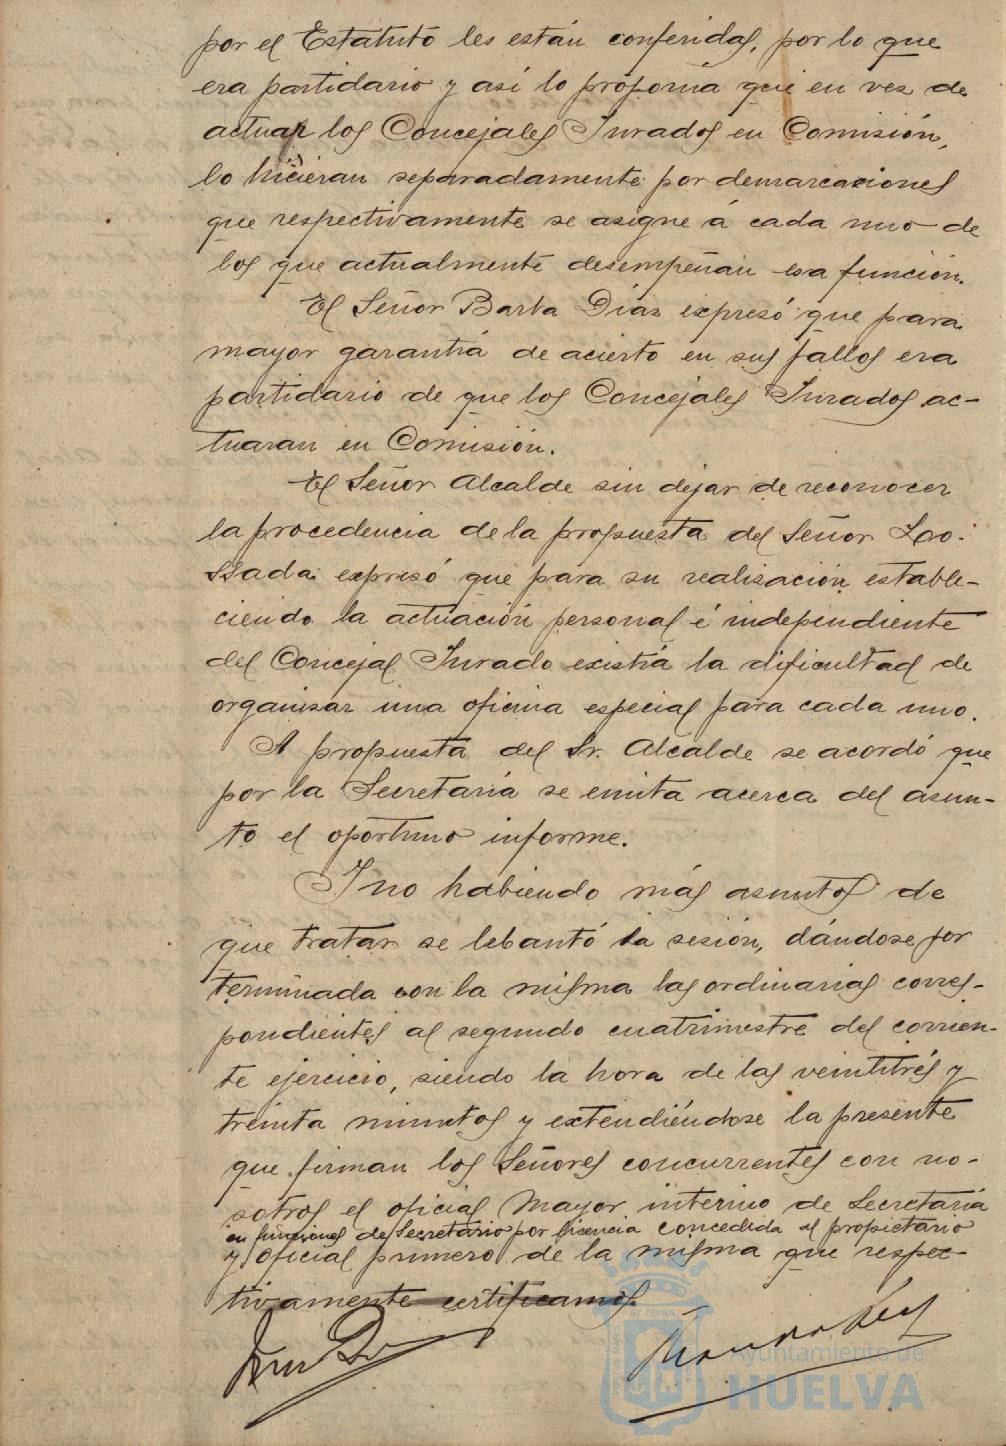 por el Estatuto les están conferidas, por lo que
era partidario y así lo proponía que en vez de
actuar los Concejales Jurados en Comisión,
lo hicieran separadamente por demarcaciones
que respectivamente se asigne á cada uno de
los que actualmente desempeñan esa función.
El Señor Barba Díaz expresó que para
mayor garantía de acierto en sus fallos era
partidario de que los Concejales Jurados ac-
tuaran en Comisión.
El Señor Alcalde sin dejar de reconocer
la procedencia de la propuesta del Señor Lo-
ssada expresó que para su realización estable-
ciendo la actuación personal é independiente
del Concejal Jurado existía la dificultad de
organizar una oficina especial para cada uno.
A propuesta del Sr. Alcalde se acordó que
por la Secretaría se emita acerca del asun-
to el oportuno informe.
Y no habiendo más asuntos de
que tratar se lebantó la sesión, dándose por
terminada con la misma las ordinarias corres-
pondientes al segundo cuatrimestre del corrien-
te ejercicio, siendo la hora de las veintitrés y
treinta minutos y extendiéndose la presente
que firman los Señores concurrentes con no-
sotros el oficial Mayor interino de Secretaría
en funciones de Secretario por licencia concedida al propietario
y oficial primero de la misma que respec-
tivamente certificamos.
Ayuntamiento de
HUELVA